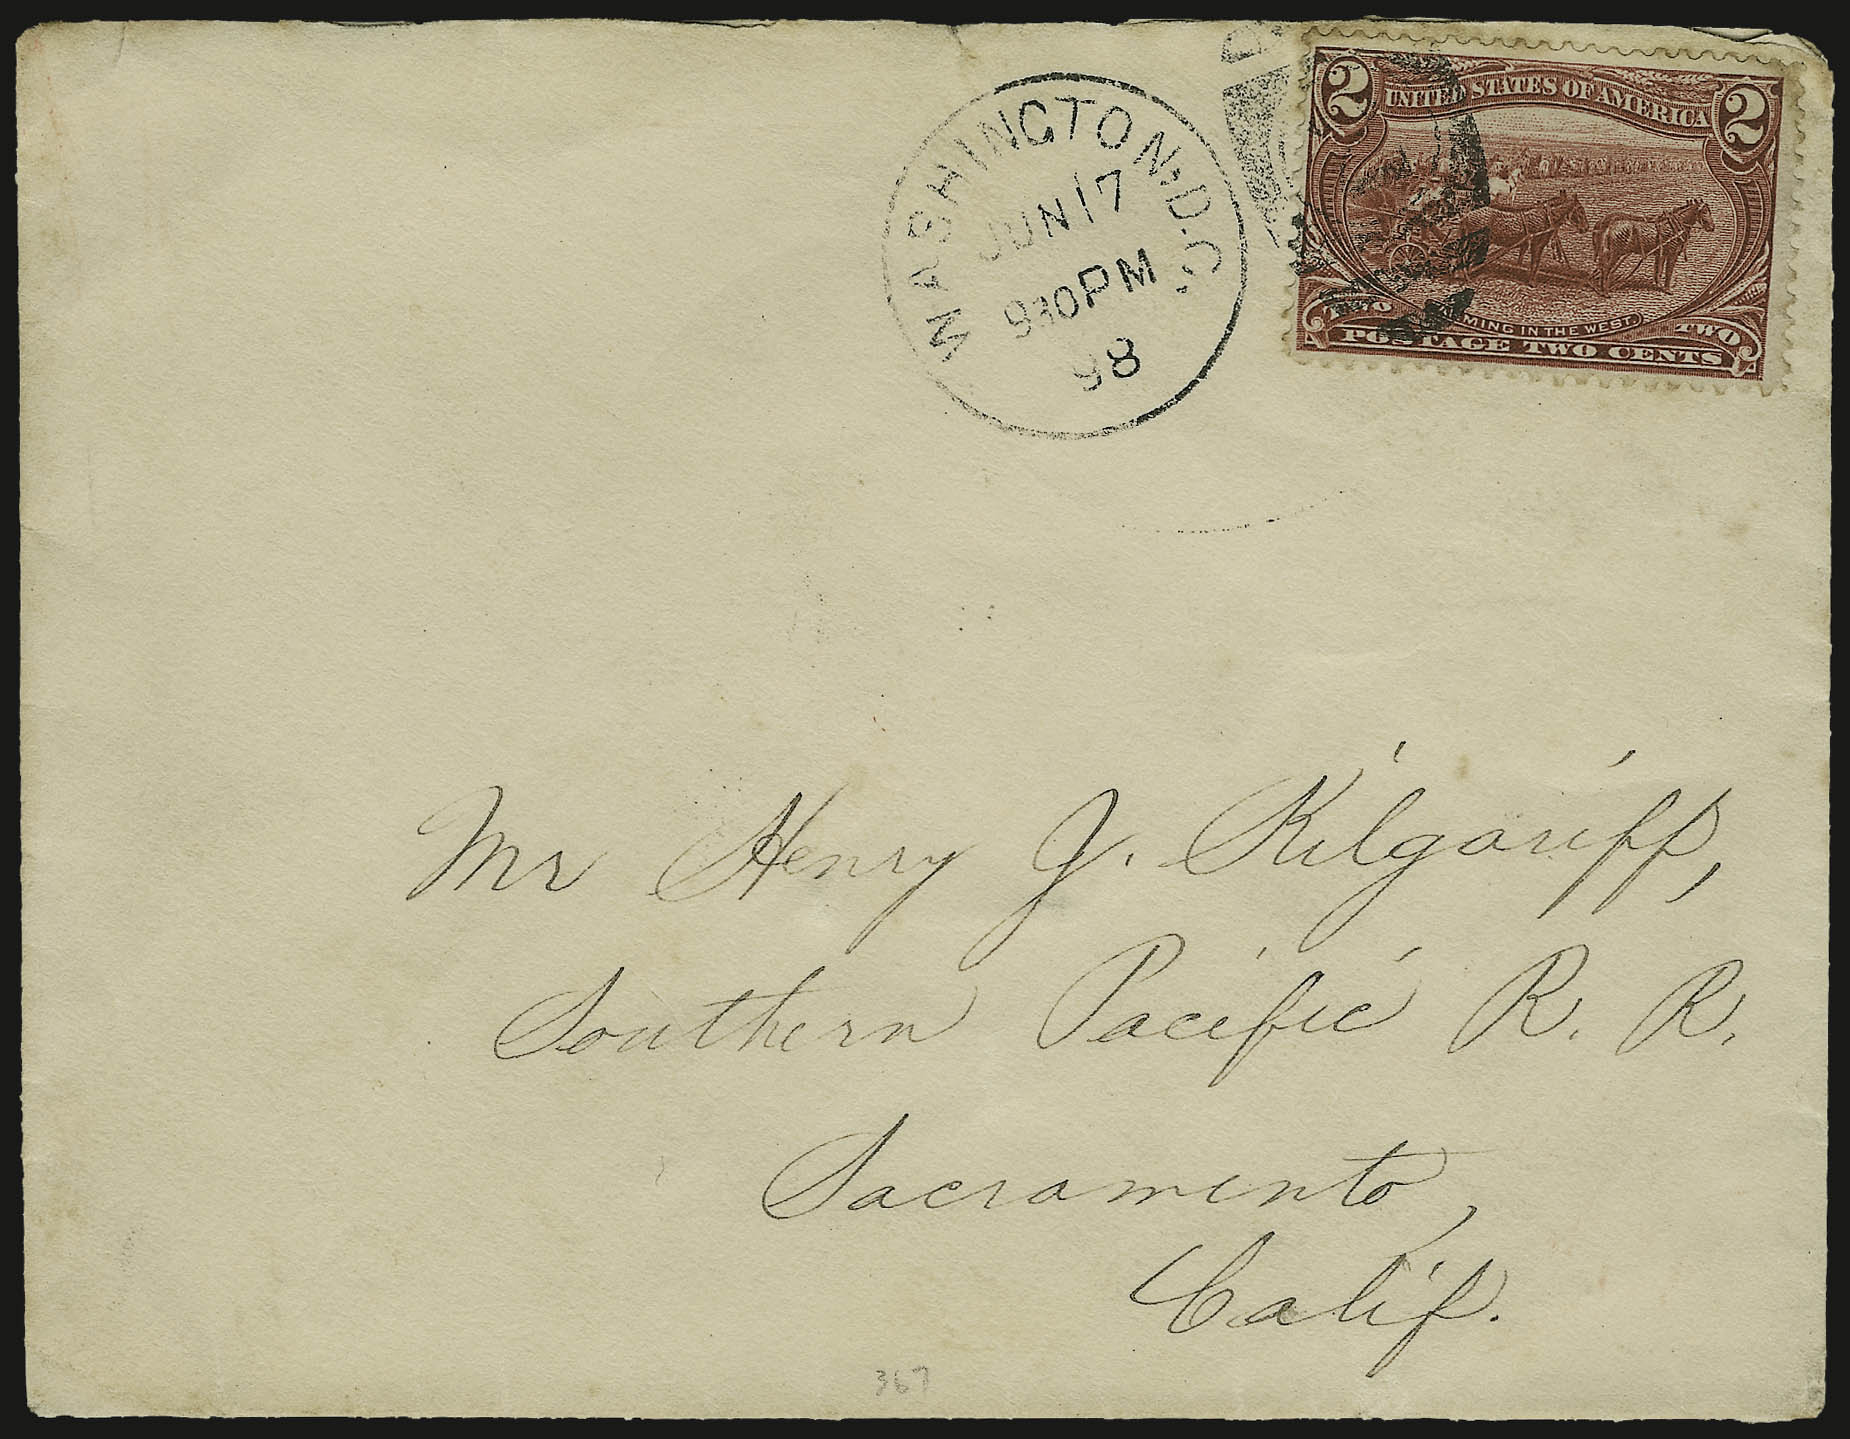 WASHINGTON.D.C.
JUN 17
930PM
98
2 UNITED STATES OF AMERICA 2
TWO FARMING IN THE WEST. TWO
POSTAGE TWO CENTS
Mr Henry J. Kilgariff,
Southern Pacific R. R.
Sacramento,
Calif.
367